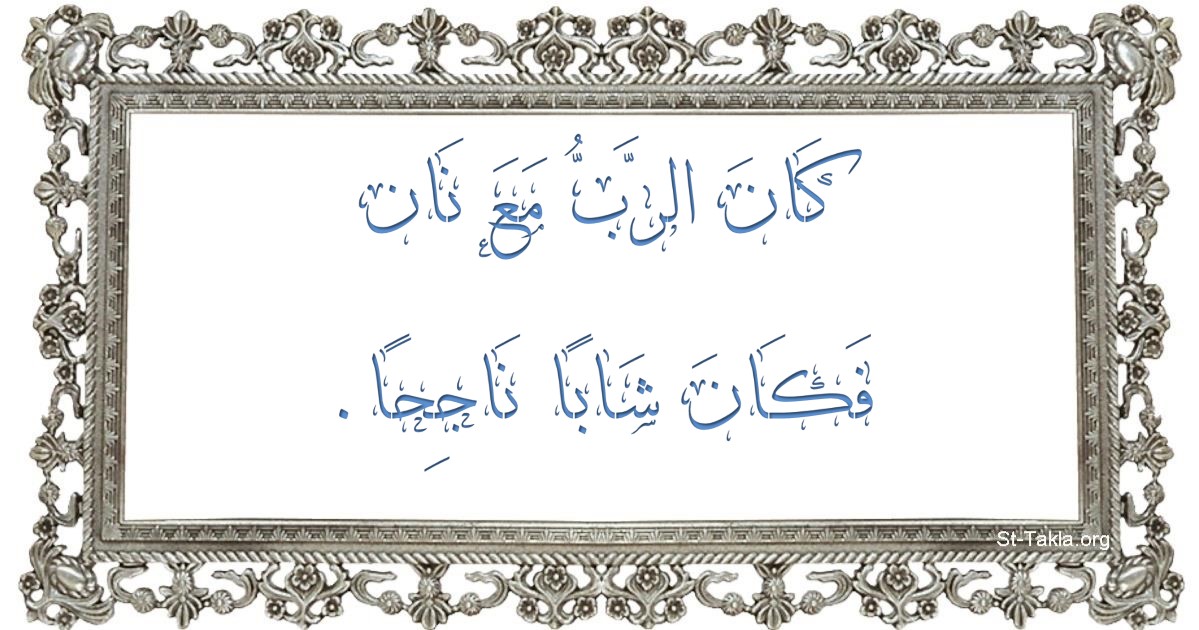 كَانَ الرَّبُّ مَعَ نَان
فَكَانَ شَابًا نَاجِحًا .
St-Takla.org